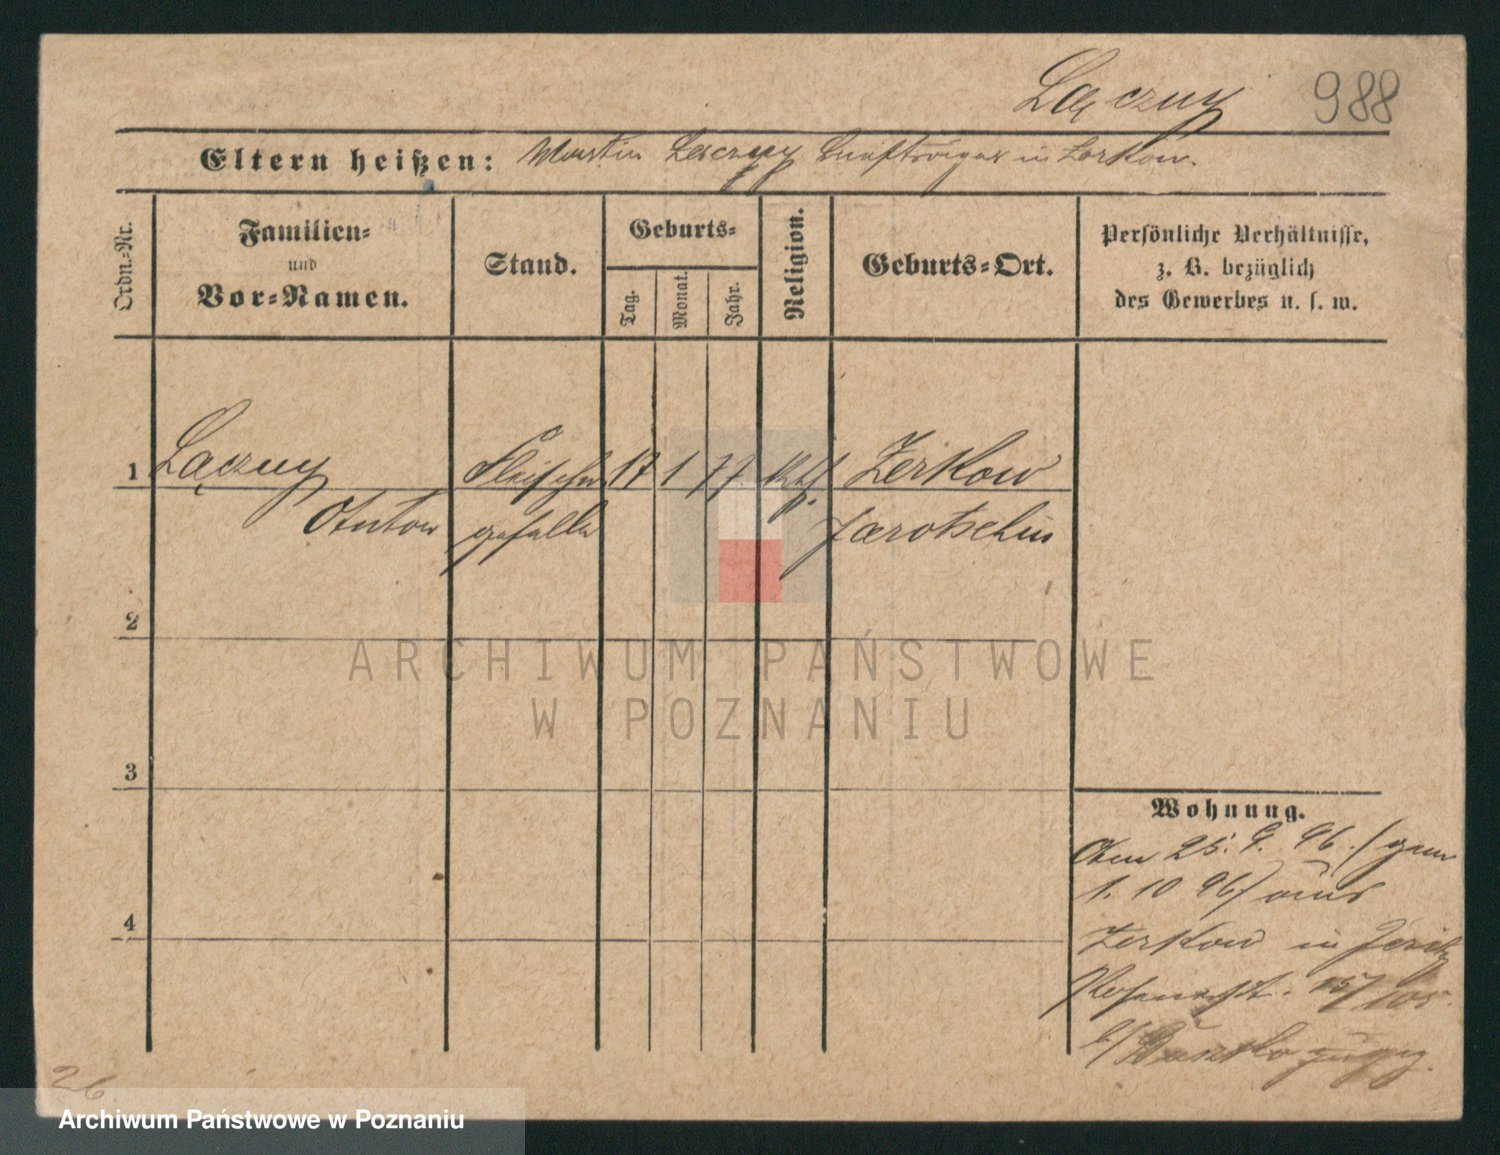 Lączny 988
Eltern heißen: Martin Lączny in Zerkow.
Ordn.-Nr.
Familien-
und
Vor-Namen.
Stand.
Geburts-
Tag.
Monat.
Jahr.
Religion.
Geburts-Ort.
Persönliche Verhältnisse,
z. B. bezüglich
des Gewerbes u. s. w.
1 Lączny Fleischer 17 1 77 kth. Zerkow
Anton geselle Jarotschin
2
3
4
Wohnung.
Am 25. 9. 96. / gem
1. 10 96 / aus
Zerkow in Jersitz
26
ARCHIWUM PAŃSTWOWE
W POZNANIU
Archiwum Państwowe w Poznaniu